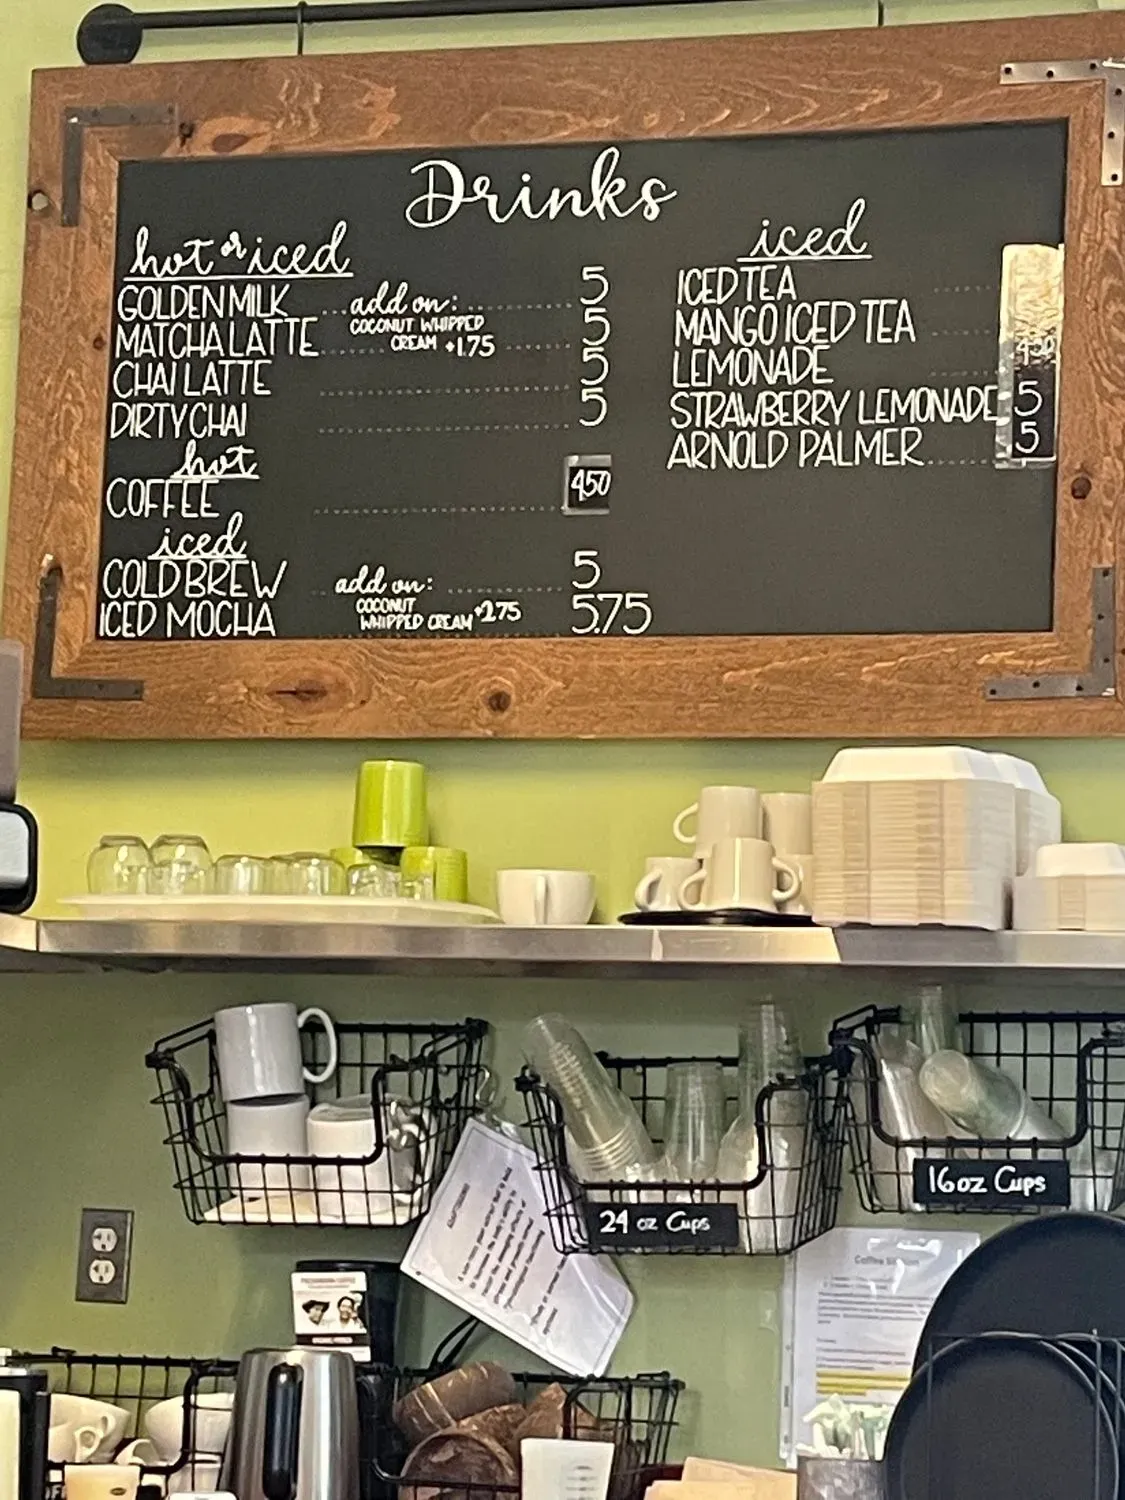 Drinks
hot or iced
GOLDEN MILK
add on:
5
MATCHA LATTE
COCONUT WHIPPED
CREAM +1.75
5
CHAI LATTE
5
DIRTY CHAI
5
hot
COFFEE
4.50
iced
COLD BREW
add on:
5
ICED MOCHA
COCONUT
WHIPPED CREAM +2.75
5.75
iced
ICED TEA
MANGO ICED TEA
LEMONADE
4.50
STRAWBERRY LEMONADE
5
ARNOLD PALMER
5
24 oz Cups
16oz Cups